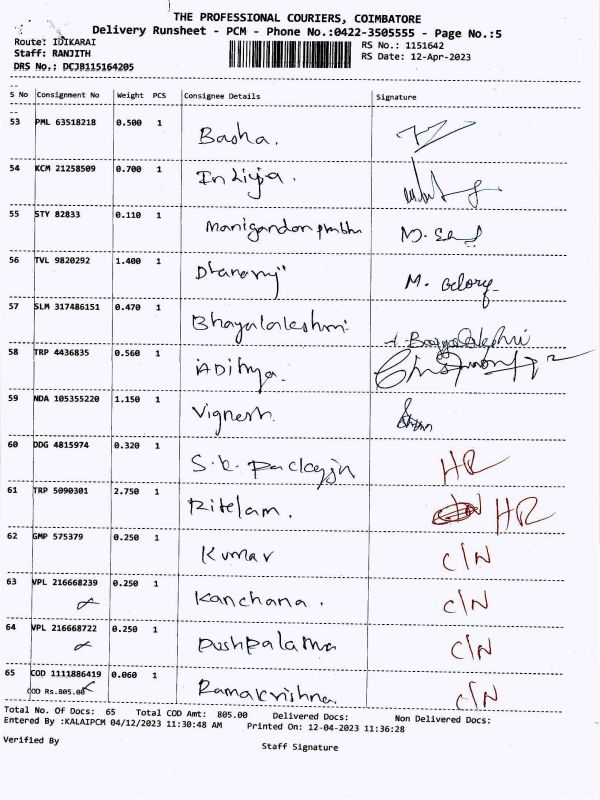 THE PROFESSIONAL COURIERS, COIMBATORE
Delivery Runsheet - PCM - Phone No.:0422-3505555 - Page No.:5
Route: IDIKARAI
RS No.: 1151642
Staff: RANJITH
RS Date: 12-Apr-2023
DRS No.: DCJB115164205
S No Consignment No Weight PCS Consignee Details Signature
53 PML 63518218 0.500 1 Basha.
54 KCM 21258509 0.700 1
55 STY 82833 0.110 1 M.
56 TVL 9820292 1.400 1 M.
57 SLM 317486151 0.470 1
58 TRP 4436835 0.560 1 ADithya.
59 NDA 105355220 1.150 1 Vignesh.
60 DDG 4815974 0.320 1 S.K. HR
61 TRP 5090301 2.750 1 Ritelam. HR
62 GMP 575379 0.250 1 Kumar C/N
63 VPL 216668239 0.250 1 Kanchana. C/N
64 VPL 216668722 0.250 1 C/N
65 COD 1111886419 0.060 1 Ramakrishna C/N
COD Rs.805.00
Total No. Of Docs: 65 Total COD Amt: 805.00 Delivered Docs: Non Delivered Docs:
Entered By :KALAIPCM 04/12/2023 11:30:48 AM Printed On: 12-04-2023 11:36:28
Verified By
Staff Signature